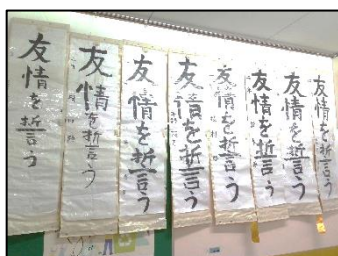 友情を誓う
友情を誓う
友情を誓う
友情を誓う
友情を誓う
友情を誓う
友情を誓う
友情を誓う